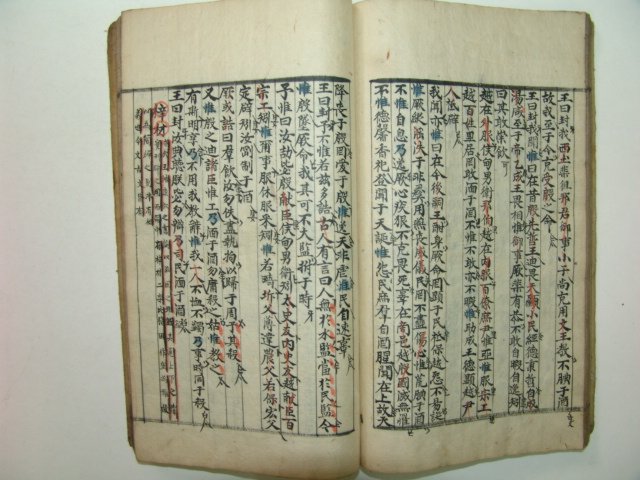 王曰封我西土棐徂邦君御事小子尚克用文王教不腆于酒
故我至于今克受殷之命
王曰封我聞惟曰在昔殷先哲王迪畏天顯小民經德秉哲自成
湯咸至于帝乙成王畏相惟御事厥棐有恭不敢自暇自逸矧
曰其敢崇飲
越在外服侯甸男衛邦伯越在內服百僚庶尹惟亞惟服宗工
越百姓里居罔敢湎于酒不惟不敢亦不暇惟助成王德顯越尹
人祗辟
我聞亦惟曰在今後嗣王酣身厥命罔顯于民祗保越怨不易誕
惟厥縱淫泆于非彝用燕喪威儀民罔不衋傷心惟荒腆于酒
不惟自息乃逸厥心疾狠不克畏死辜在商邑越殷國滅無罹
不惟德馨香祀登聞于天誕惟民怨庶羣自酒腥聞在上故天
降喪于殷罔愛于殷惟逸天非虐惟民自速辜
王曰封予不惟若茲多誥古人有言曰人無於水監當於民監今
惟殷墜厥命我其可不大監撫于時
予惟曰汝劼毖殷獻臣侯甸男衛矧太史友內史友越獻臣百
宗工矧惟爾事服休服采矧惟若疇圻父薄違農父若保宏父
定辟矧汝剛制于酒
厥或誥曰羣飲汝勿佚盡執拘以歸于周予其殺
又惟殷之迪諸臣惟工乃湎于酒勿庸殺之姑惟教之
有斯明享乃不用我教辭惟我一人不恤不蠲乃事時同于殺
王曰封汝典聽朕毖勿辯乃司民湎于酒
梓材